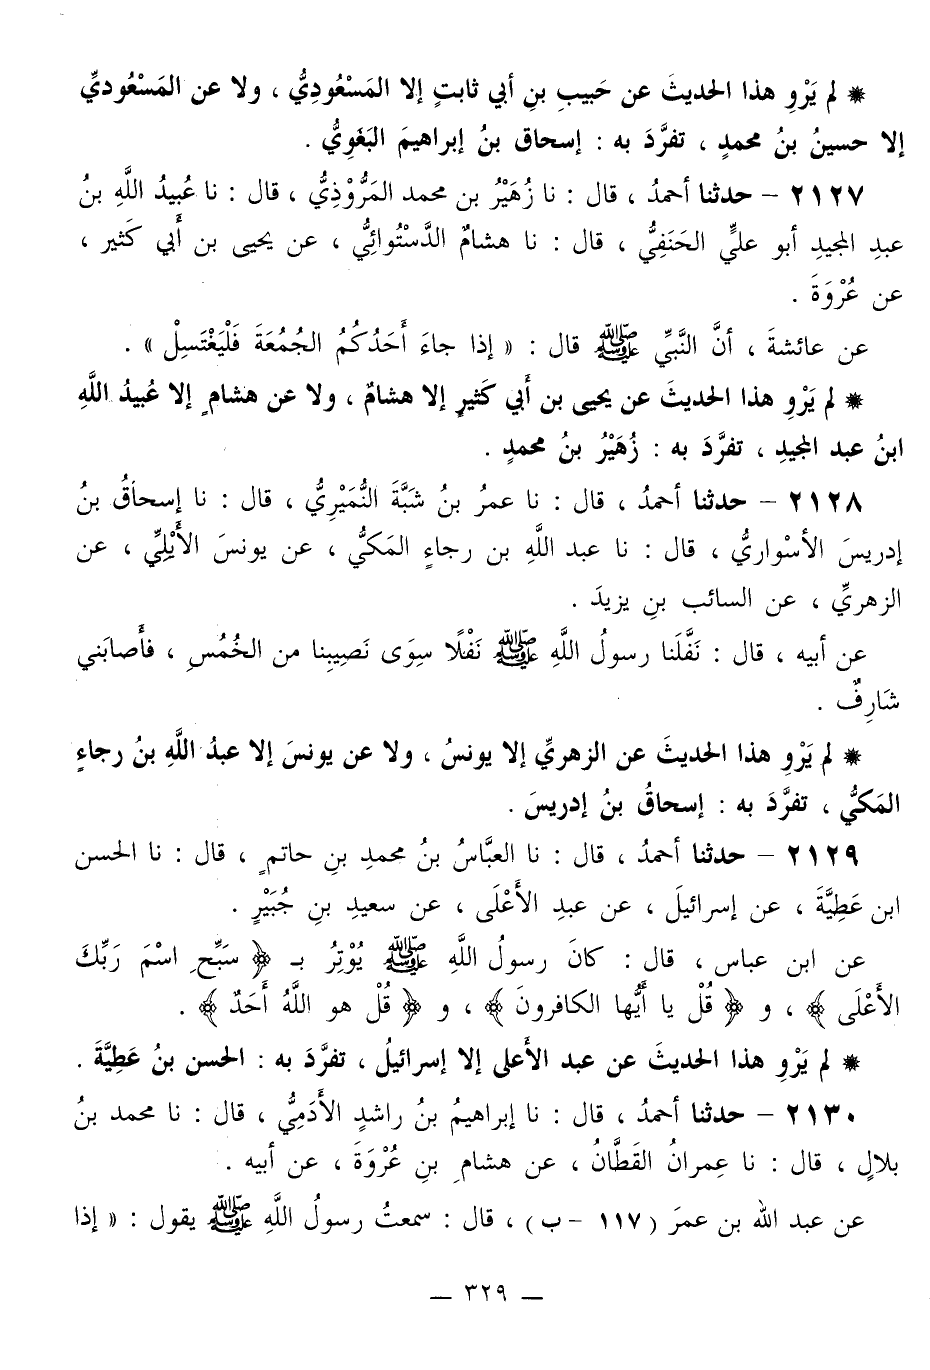 * لم يَرْوِ هذا الحديثَ عن حَبيبِ بنِ أبي ثابتٍ إلا المَسْعُودِيُّ ، ولا عن المَسْعُوديِّ
إلا حسينُ بنُ محمدٍ ، تفرَّدَ به : إسحاق بنُ إبراهيمَ البَغَوِيُّ .
٢١٢٧ - حدثنا أحمدُ ، قال : نا زُهَيْرُ بن محمد المَرُّوْذِيُّ ، قال : نا عُبيدُ اللَّهِ بنُ
عبدِ المجيدِ أبو عليٍّ الحَنَفِيُّ ، قال : نا هشامٌ الدَّسْتُوائِيُّ ، عن يحيى بن أَبي كَثير ،
عن عُرْوَةَ .
عن عائشةَ ، أنَّ النَّبيِّ ﷺ قال : « إذا جاءَ أَحَدُكُمُ الجُمُعَةَ فَلْيَغْتَسِلْ » .
* لم يَرْوِ هذا الحديثَ عن يحيى بن أَبي كَثيرٍ إلا هشامٌ ، ولا عن هشامٍ إلا عُبيدُ اللَّهِ
ابنُ عبد المجيدِ ، تفرَّدَ به : زُهَيْرُ بنُ محمدٍ .
٢١٢٨ - حدثنا أحمدُ ، قال : نا عمرُ بنُ شَبَّةَ النُّمَيْرِيُّ ، قال : نا إسحاقُ بنُ
إدريسَ الأسْواريُّ ، قال : نا عبد اللَّهِ بن رجاءٍ المَكيُّ ، عن يونسَ الأَيْلِيِّ ، عن
الزهريِّ ، عن السائب بنِ يزيدَ .
عن أبيه ، قال : نَفَّلَنا رسولُ اللَّهِ ﷺ نَفْلًا سِوَى نَصِيبِنا من الخُمُسِ ، فأَصابَني
شَارِفٌ .
* لم يَرْوِ هذا الحديثَ عن الزهريِّ إلا يونسُ ، ولا عن يونسَ إلا عبدُ اللَّهِ بنُ رجاءٍ
المَكيُّ ، تفرَّدَ به : إسحاقُ بنُ إدريسَ .
٢١٢٩ - حدثنا أحمدُ ، قال : نا العبَّاسُ بنُ محمدِ بنِ حاتمٍ ، قال : نا الحسن
ابن عَطِيَّةَ ، عن إسرائيلَ ، عن عبدِ الأَعْلَى ، عن سعيدِ بنِ جُبَيْرٍ .
عن ابن عباس ، قال : كانَ رسولُ اللَّهِ ﷺ يُوْتِرُ بـ ﴿ سَبِّحِ اسْمَ رَبِّكَ
الأَعْلَى ﴾ ، و ﴿ قُلْ يا أَيُّها الكافرونَ ﴾ ، و ﴿ قُلْ هو اللَّهُ أَحَدٌ ﴾ .
* لم يَرْوِ هذا الحديثَ عن عبد الأَعلى إلا إسرائيلُ ، تفرَّدَ به : الحسن بنُ عَطِيَّةَ .
٢١٣٠ - حدثنا أحمدُ ، قال : نا إبراهيمُ بنُ راشدٍ الأَدَمِيُّ ، قال : نا محمد بنُ
بلالٍ ، قال : نا عِمرانُ القَطَّانُ ، عن هشامِ بنِ عُرْوَةَ ، عن أبيه .
عن عبد الله بن عمرَ ( ١١٧ - ب ) ، قال : سمعتُ رسولُ اللَّهِ ﷺ يقول : « إذا
— ٣٢٩ —